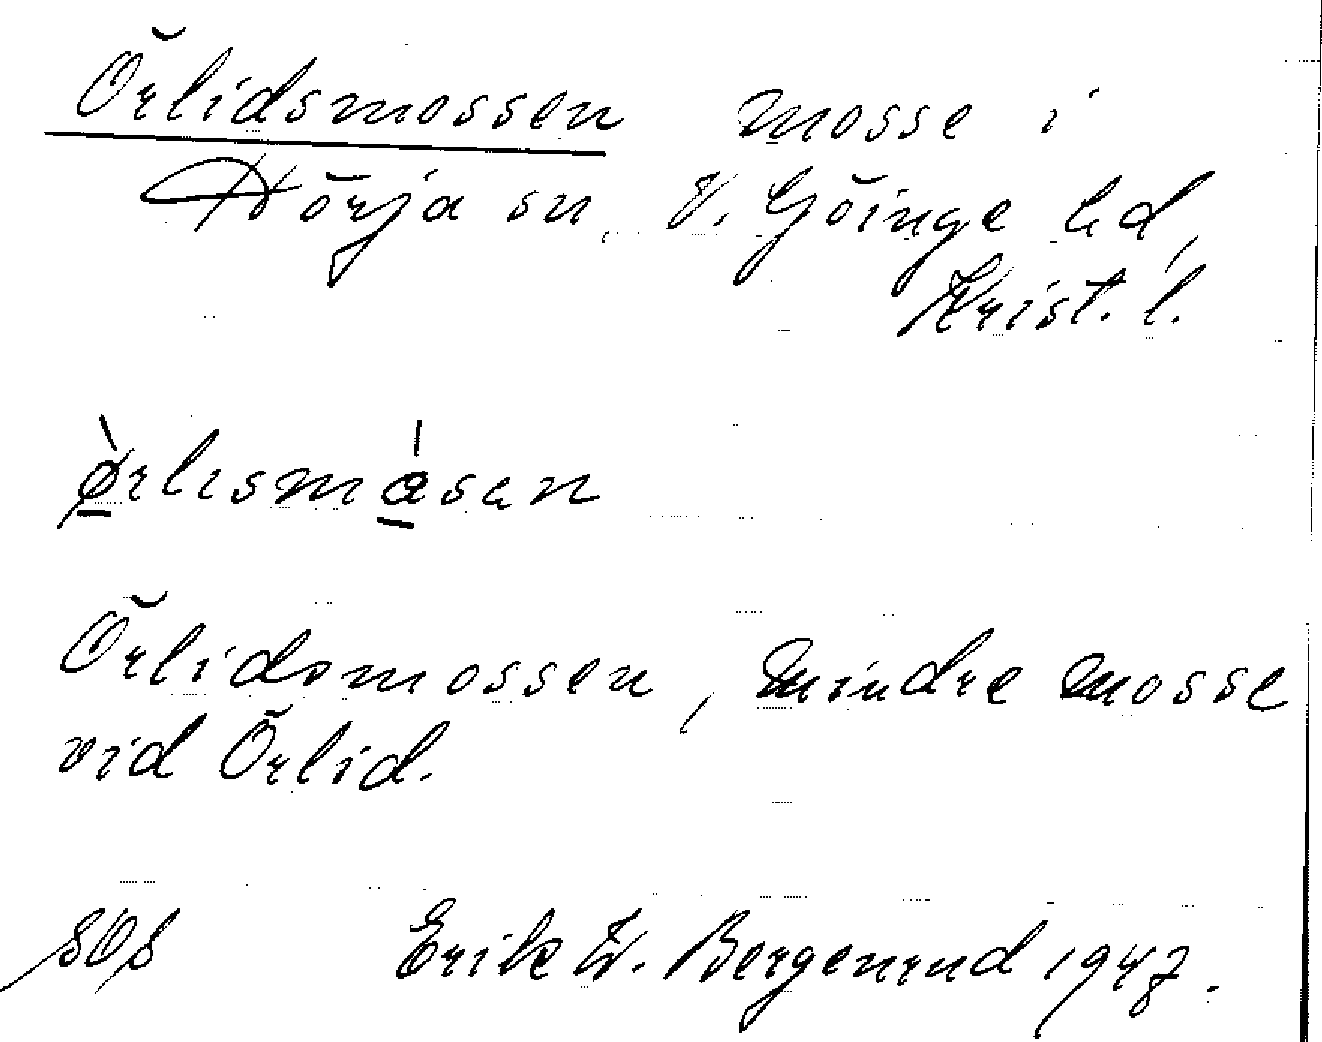 Örlidsmossen mosse i
Hörja sn, V. Göinge hd,
Krist. l.
ø̀rlismásan
Örlidsmossen, mindre mosse
vid Örlid.
Erik W. Bergenrud 1947.